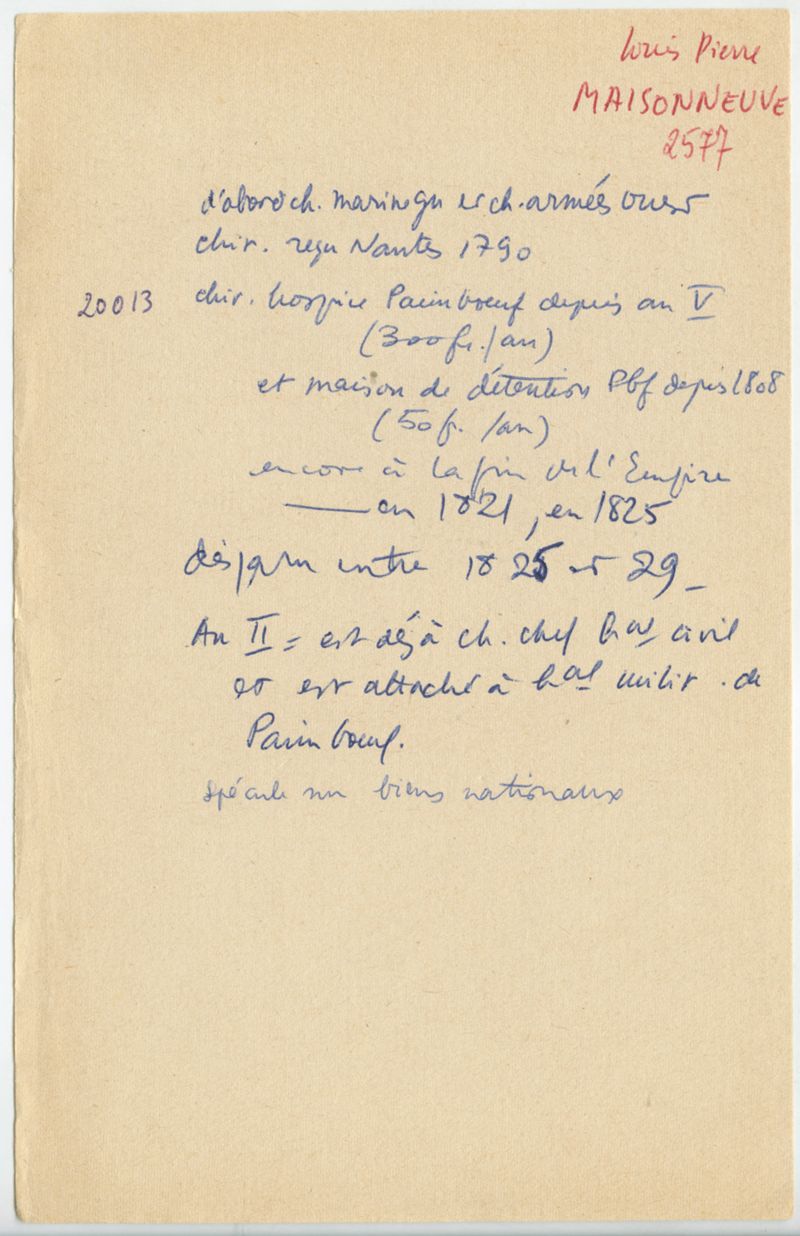 Louis Pierre
MAISONNEUVE
2577
d'abord ch. marine et ch. armées Ouest
chir. reçu Nantes 1790
20013 chir. hospice Paimboeuf depuis an V
(300 fr. / an)
et maison de détention Pbf depuis 1808
(50 fr. / an)
encore à la fin de l'Empire
—— en 1821, en 1825
disparu entre 1825 et 29_
An II = est déjà ch. chef hal civil
et est attaché à hal milit. de
Paimboeuf.
spécule sur biens nationaux